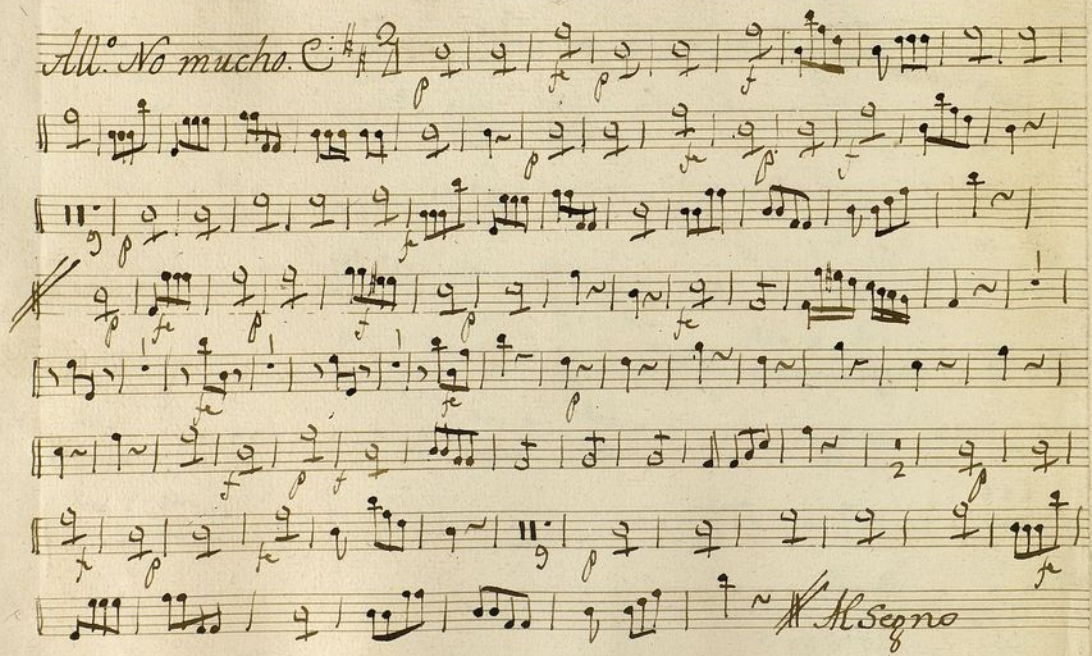 All.º No mucho.
p fe p f
p fe p f
9 p fe
p fe p f p fe
fe fe p
f p f 2 p
fe p fe 9 p fe
Al Segno